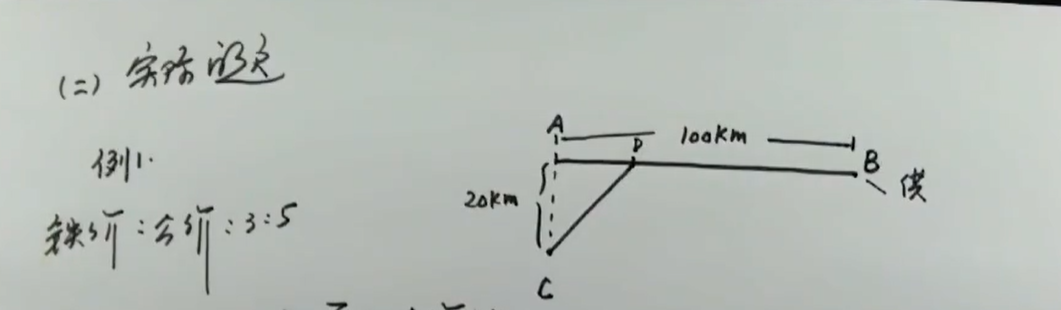 (二) 实际问题
例1.
铁行:公行:3:5
A
100km
D
B
供
20km
C